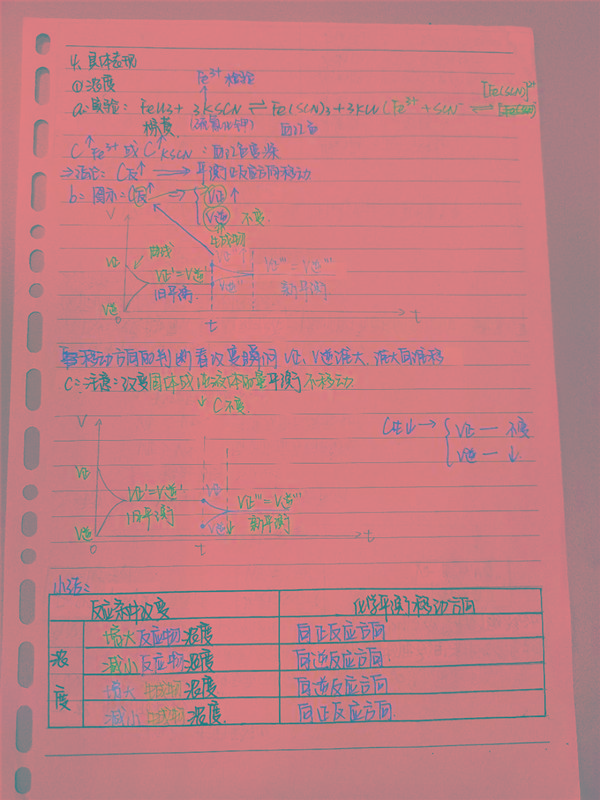 4. 具体表现
①浓度 Fe³⁺检验
a: 实验: FeCl3 + 3KSCN ⇌ Fe(SCN)3 + 3KCl (Fe³⁺ + SCN⁻ ⇌ [Fe(SCN)]²⁺
棕黄 (硫氰化钾) 血红色
C↑Fe³⁺ 或 C↑KSCN : 血红色变深
⇒结论: C反↑ ⟹ 平衡正反应方向移动
b: 图示: C反↑ ⇒ { V正 ↑
V逆 不变
生成物
V
V正 V正'=V逆' V正''' = V逆'''
旧平衡 V逆'' 新平衡
V逆 0 t t
移动方向的判断看改变瞬间 V正、V逆谁大,谁大向谁移
C: 注意: 改变固体或纯液体的量平衡不移动
↓ C不变
V C生↓ → { V正 — 不变
V逆 — ↓
V正 V正'=V逆' V正'''=V逆'''
旧平衡 V逆↓ 新平衡
V逆 0 t t
小结:
反应条件改变 化学平衡移动方向
浓度 增大反应物浓度 向正反应方向
减小反应物浓度 向逆反应方向.
增大生成物浓度 向逆反应方向
减小生成物浓度. 向正反应方向.